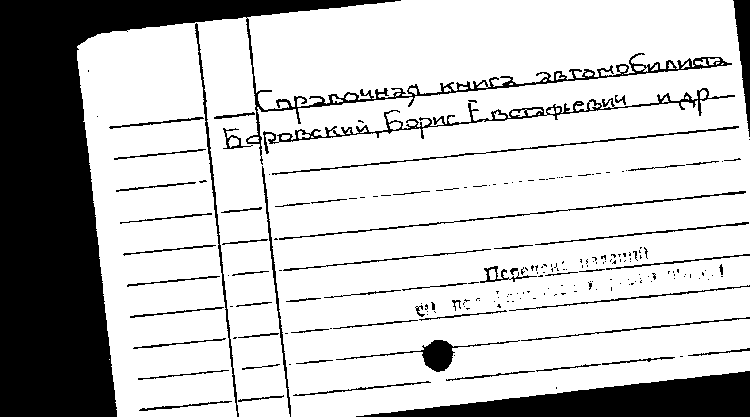 Справочная книга автомобилиста
Боровский, Борис Евстафьевич и др.
Перечень изданий
см. под